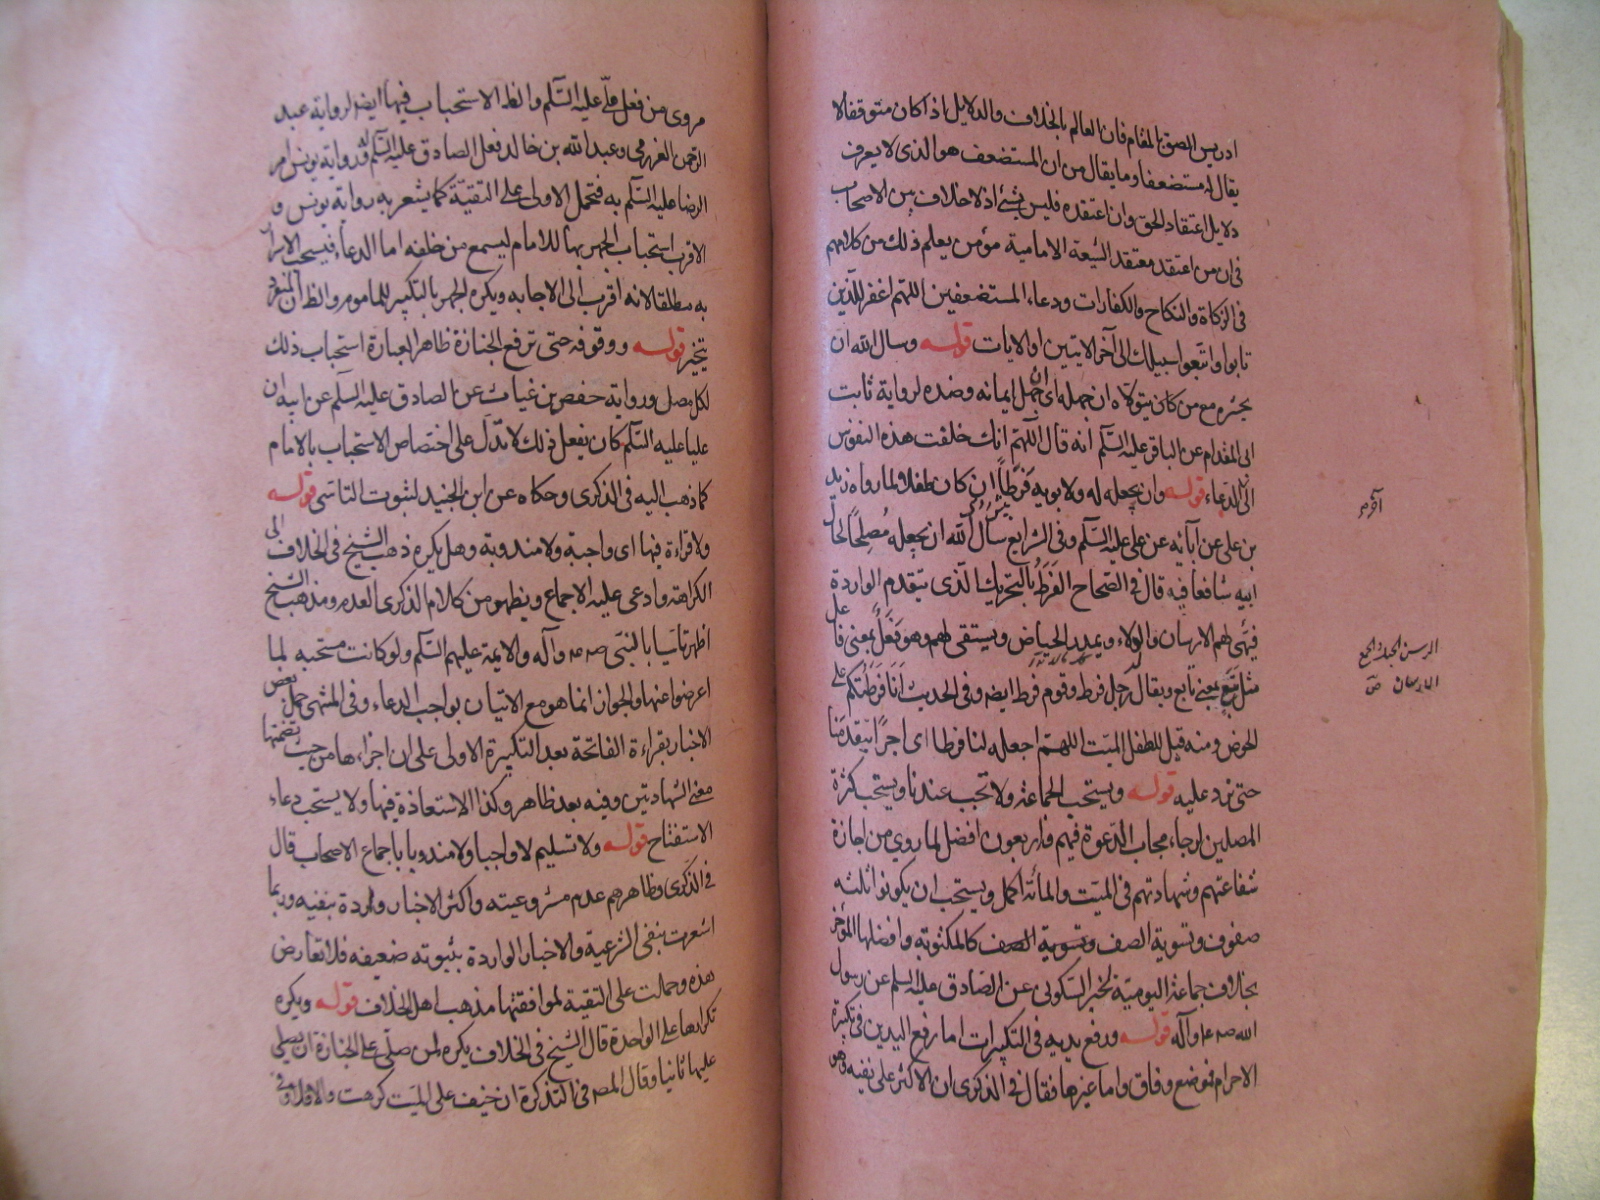 ادريس الصق بالمقام فان العالم بالخلاف والدلايل اذا كان متوقفا لا
يقال له مستضعفا وما يقال من ان المستضعف هو الذى لا يعرف
دلايل اعتقاد الحق وان اعتقده فليس بشئ اذ لا خلاف بين الاصحاب
فى ان من اعتقد معتقد الشيعة الامامية مؤمن يعلم ذلك من كلامهم
فى الزكاة والنكاح والكفارات ودعاء المستضعفين اللهم اغفر للذين
تابوا واتبعوا سبيلك الى آخر الايتين او الايات قوله وسال الله ان
يحشره مع من كان يتولاه ان جهله اى ان جهل ايمانه وضده لرواية ثابت
ابى المقدام عن الباقر عليه السّلم أنه قال اللّهم انك خلقت هذه النفوس
الى الدعاء قوله وان يجعله له ولابويه فَرَطاً ان كان طفلا لما رواه زيد
بن على عن آبائه عن على عليه السّلم وفى الشرايع سال الله ان يجعله مُصلِحاً لحال
ابيه شافعا فيه قال فى الصّحاح الفَرَطُ بالتحريك الّذى يتقدم الواردة
فيهئ لهم الارسان والدلاء ويمدر الحياض ويستقى لهم وهو فَعَلٌ بمعنى فاعل
مثل تَبَع بمعنى تابع ويقال رجل فرط وقوم فرط ايضه وفى الحديث أنا فَرَطُكم على
الحوض ومنه قيل للطفل الميّت اللهمّ اجعله لنا فرطا اى اجرًا يتقدمنا
حتى نرد عليه قوله ويستحب الجماعة ولا تجب عندنا ويستحب كثرة
المصلين لرجاء مجاب الدّعوة فيهم فاربعون افضل لما روي من اجازة
شفاعتهم وشهادتهم فى الميّت والمائة اكمل ويستحب ان يكونوا ثلثه
صفوف وتسوية الصف وتسوية الصف كالمكتوبة وافضلها المؤخر
بخلاف جماعة اليوميّة لخبر السّكونى عن الصّادق عليه السلم عن رسول
الله صه ع وآله قوله ورفع يديه فى التكبيرات اما رفع اليدين فى تكبيرة
الاحرام فموضع وفاق واما غيرها فقال فى الذكرى ان الاكثر على نفيه وهو
الرسن الحبل والجمع
الارسان ص
مروى من فعل علىّ عليه السّلم والظ الاستحباب فيها ايضه لرواية عبد
الرحمن العزرمى وعبد الله بن خالد فعل الصادق عليه السّلم له ورواية يونس امر
الرضا عليه السّلم به فتحمل الاولى على التقيّة كما يشعر به رواية يونس و
الاقرب استحباب الجهر بها للامام ليسمع من خلفه اما الدعاء فيستحب الاسرار
به مطلقا لانه اقرب الى الاجابه ويكره الجهر بالتكبير للماموم والظ ان المنفرد
يتخير قوله ووقوفه حتى ترفع الجنازة ظاهر العبارة استحباب ذلك
لكل مصل ورواية حفص بن غياث عن الصادق عليه السّلم عن ابيه ان
عليا عليه السّلم كان يفعل ذلك لا تدلّ على اختصاص الاستحباب بالامام
كما ذهب اليه فى الذكرى وحكاه عن ابن الجنيد لثبوت التاسّى قوله
ولا قراءة فيها اى واجبة ولا مندوبة وهل يكره ذهب الشيخ فى الخلاف الى
الكراهة وادعى عليه الاجماع ويظهر من كلام الذكرى العدم ومذهب الشيخ
اظهر تاسّيا بالنبّى صه عه وآله والايمة عليهم السّلم ولو كانت مستحبه لما
اعرضوا عنها والجواز انما هو مع الاتيان بواجب الدعاء وفى المنتهى حمل بعض
الاخبار بقراءة الفاتحة بعد التكبيرة الاولى على ان اجزاءها من حيث تضمنها
معنى الشهادتين وفيه بعد ظاهر وكذا الاستعاذة فيها ولا يستحب دعاء
الاستفتاح قوله ولا تسليم لا واجبا ولا مندوبا باجماع الاصحاب قال
فى الذكرى وظاهرهم عدم مشروعيته واكثر الاخبار واردة بنفيه وربما
اشعرت بنفى الشرعية والاخبار الواردة بثبوته ضعيفه فلا تعارض
هذه وحملت على التقية لموافقتها مذهب اهل الخلاف قوله ويكره
تكرارها على الواحدة قال الشيخ فى الخلاف يكره لمن صلّى على الجنازة ان يصلى
عليها ثانيا وقال المصه فى التذكرة ان خيف على الميّت كرهت والا فلا وفى